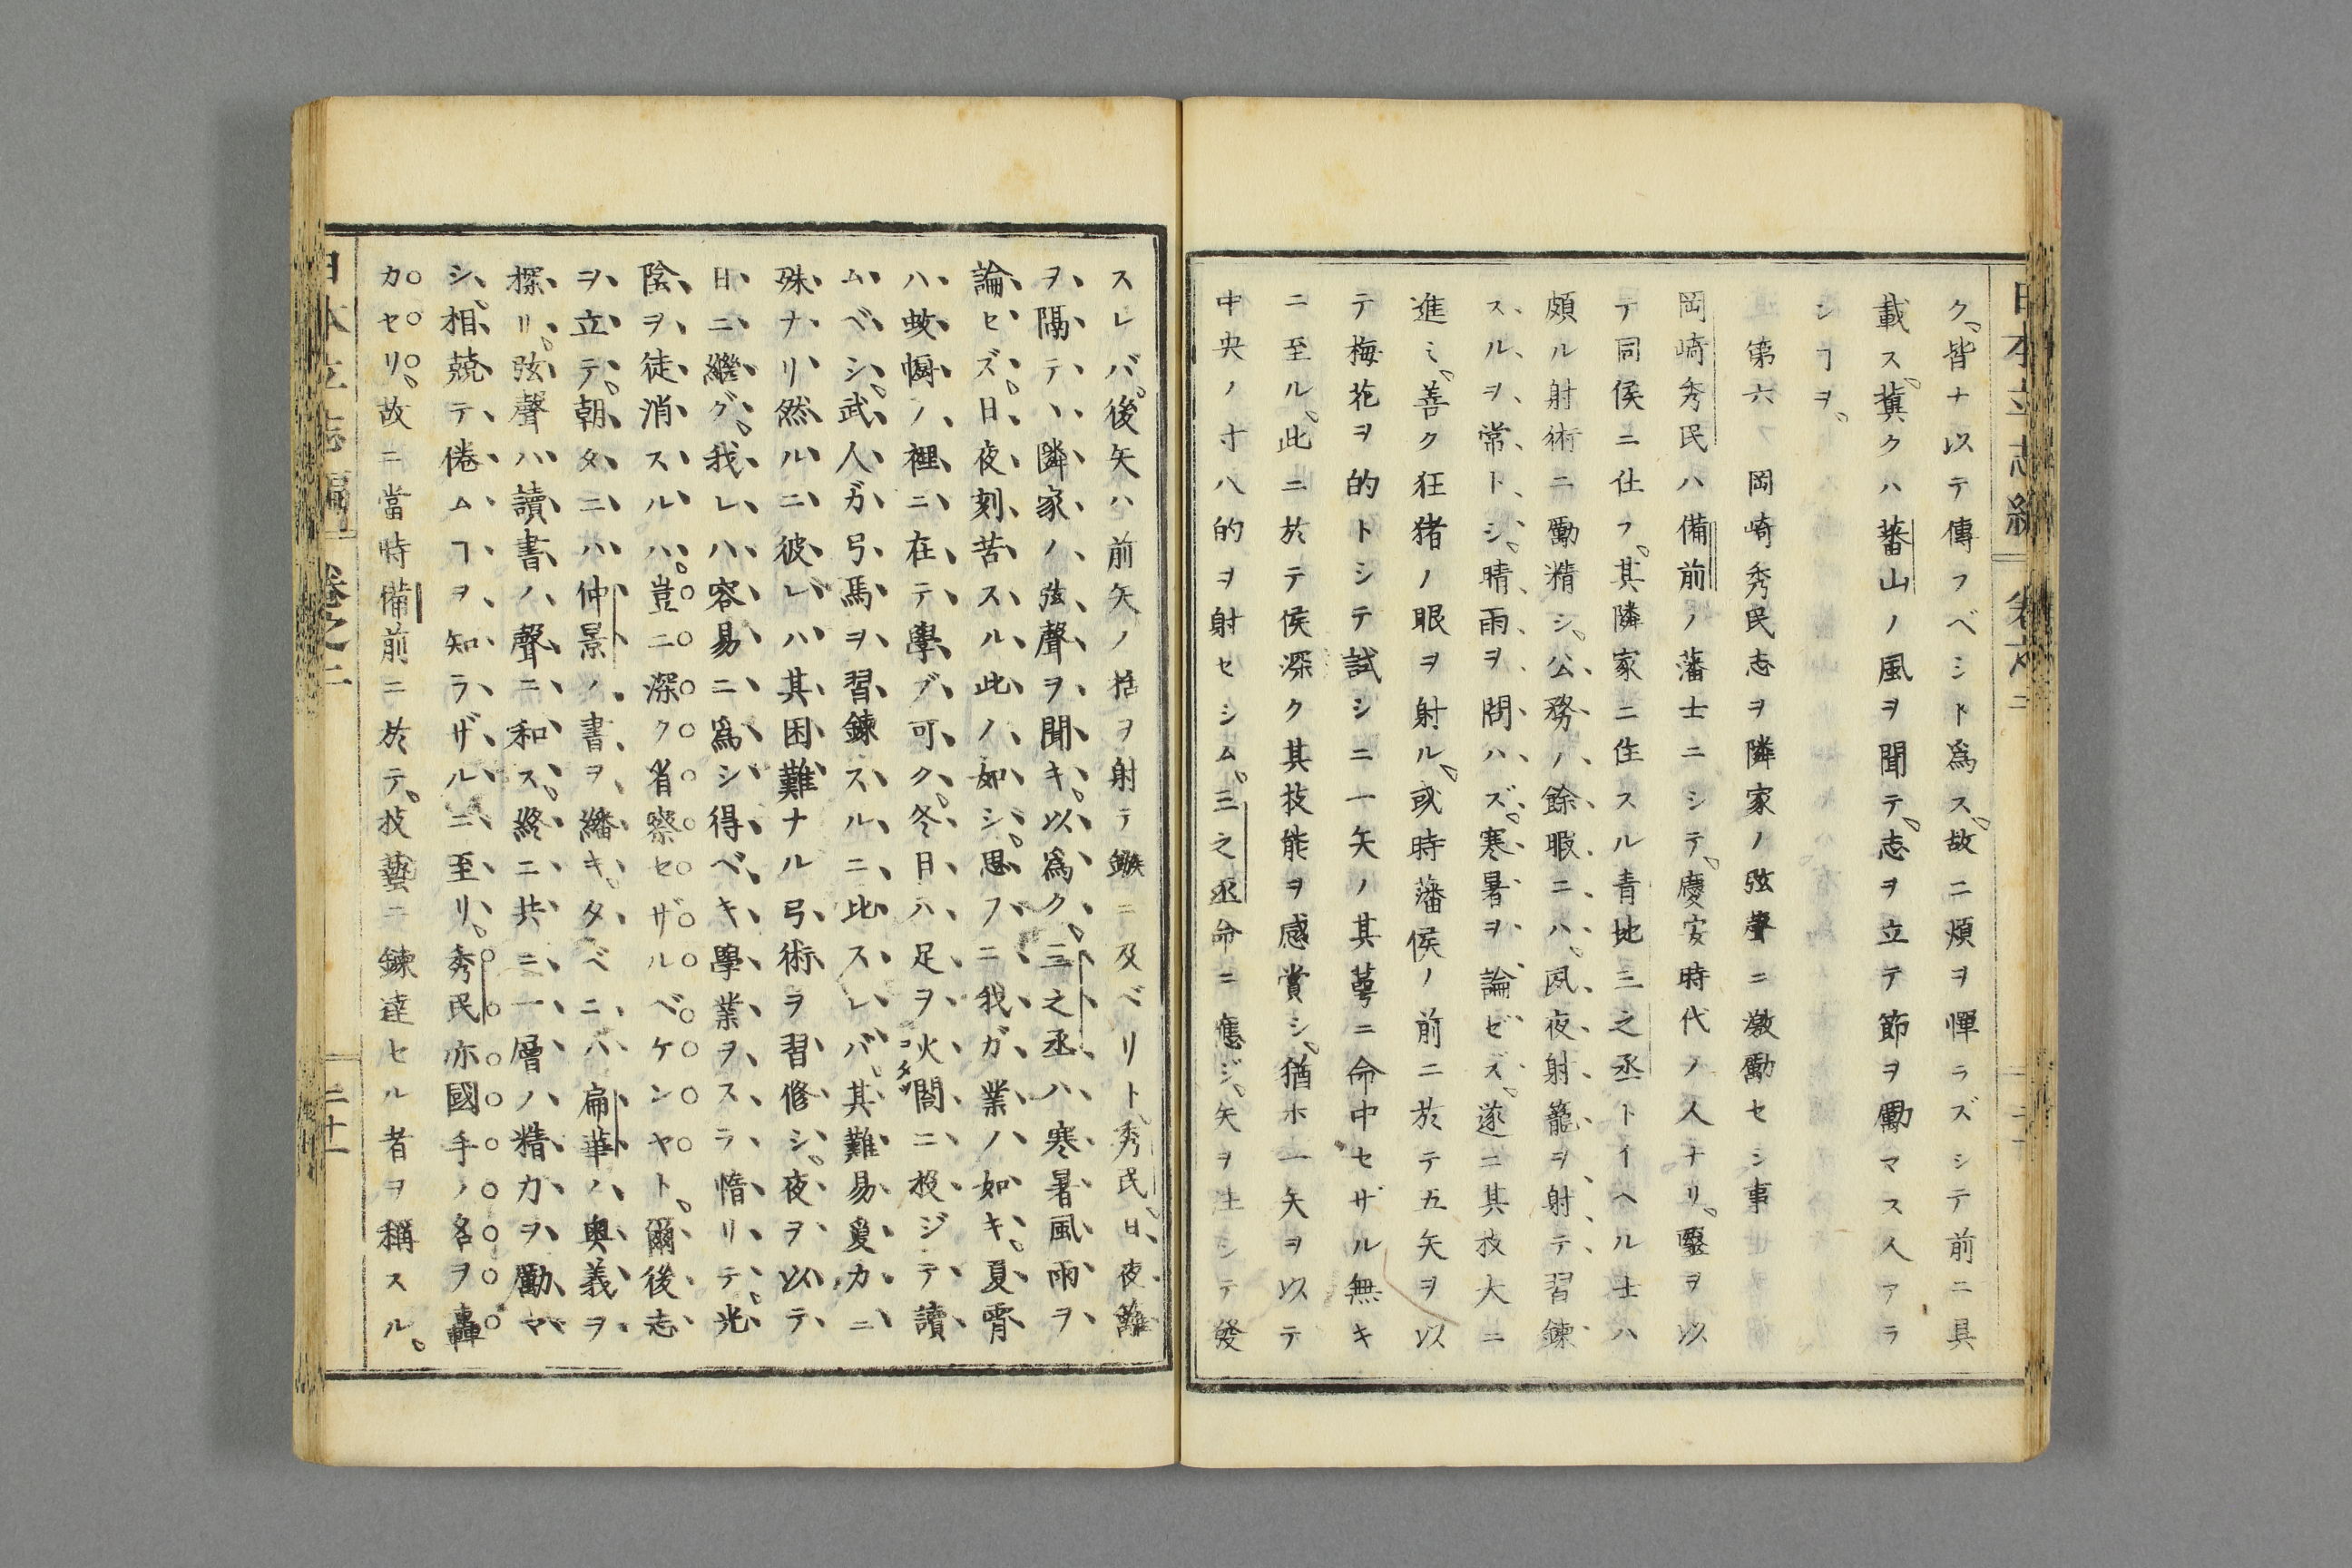 ク。皆ナ以テ傳フベシト爲ス。故ニ煩ヲ憚ラズシテ前ニ具
載ス。冀クハ蕃山ノ風ヲ聞テ。志ヲ立テ節ヲ勵マス人アラ
シヿヲ。
第六 岡崎秀民志ヲ隣家ノ弦聲ニ激勵セシ事
岡崎秀民ハ備前ノ藩士ニシテ。慶安時代ノ人ナリ。毉ヲ以
テ同侯ニ仕フ。其隣家ニ住スル青地三之丞トイヘル士ハ
頗ル射術ニ勵精シ。公務ノ餘暇ニハ。夙夜射籠ヲ射テ習錬
スルヲ常トシ。晴雨ヲ問ハズ。寒暑ヲ論ゼズ。遂ニ其技大ニ
進ミ。善ク狂猪ノ眼ヲ射ル。或時藩侯ノ前ニ於テ五矢ヲ以
テ梅花ヲ的トシテ試シニ一矢ノ其蕚ニ命中セザル無キ
ニ至ル。此ニ於テ侯深ク其技能ヲ感賞シ。猶ホ一矢ヲ以テ
中央ノ寸八的ヲ射セシム。三之丞命ニ應ジ。矢ヲ注シテ發
スレバ。後矢ハ前矢ノ括ヲ射テ鏃ニ及ベリト。秀民。日夜籬
ヲ隔テヽ隣家ノ弦聲ヲ聞キ。以爲ク。三之丞ハ寒暑風雨ヲ
論セズ。日夜刻苦スル此ノ如シ。思フニ我ガ業ノ如キ。夏宵
ハ蚊㡡ノ裡ニ在テ學ブ可ク。冬日ハ足ヲ火閤ニ投ジテ讀
ムベシ。武人ガ弓馬ヲ習錬スルニ比スレバ。其難易夐カニ
殊ナリ然ルニ彼レハ其困難ナル弓術ヲ習修シ。夜ヲ以テ
日ニ繼グ。我レハ容易ニ爲シ得ベキ學業ヲスラ惰リテ。光
陰ヲ徒消スルハ。豈ニ深ク省察セザルベケンヤト。爾後志
ヲ立テ。朝タニハ仲景ノ書ヲ繙キ。タベニハ扁華ノ奥義ヲ
探リ。弦聲ハ讀書ノ聲ニ和ス。終ニ共ニ一層ノ精力ヲ勵マ
シ。相競テ倦ムヿヲ知ラザルニ至リ。秀民亦國手ノ名ヲ轟
カセリ。故ニ當時備前ニ於テ。技藝ニ錬達セル者ヲ稱スル。
日本立志編 卷之二 二十一